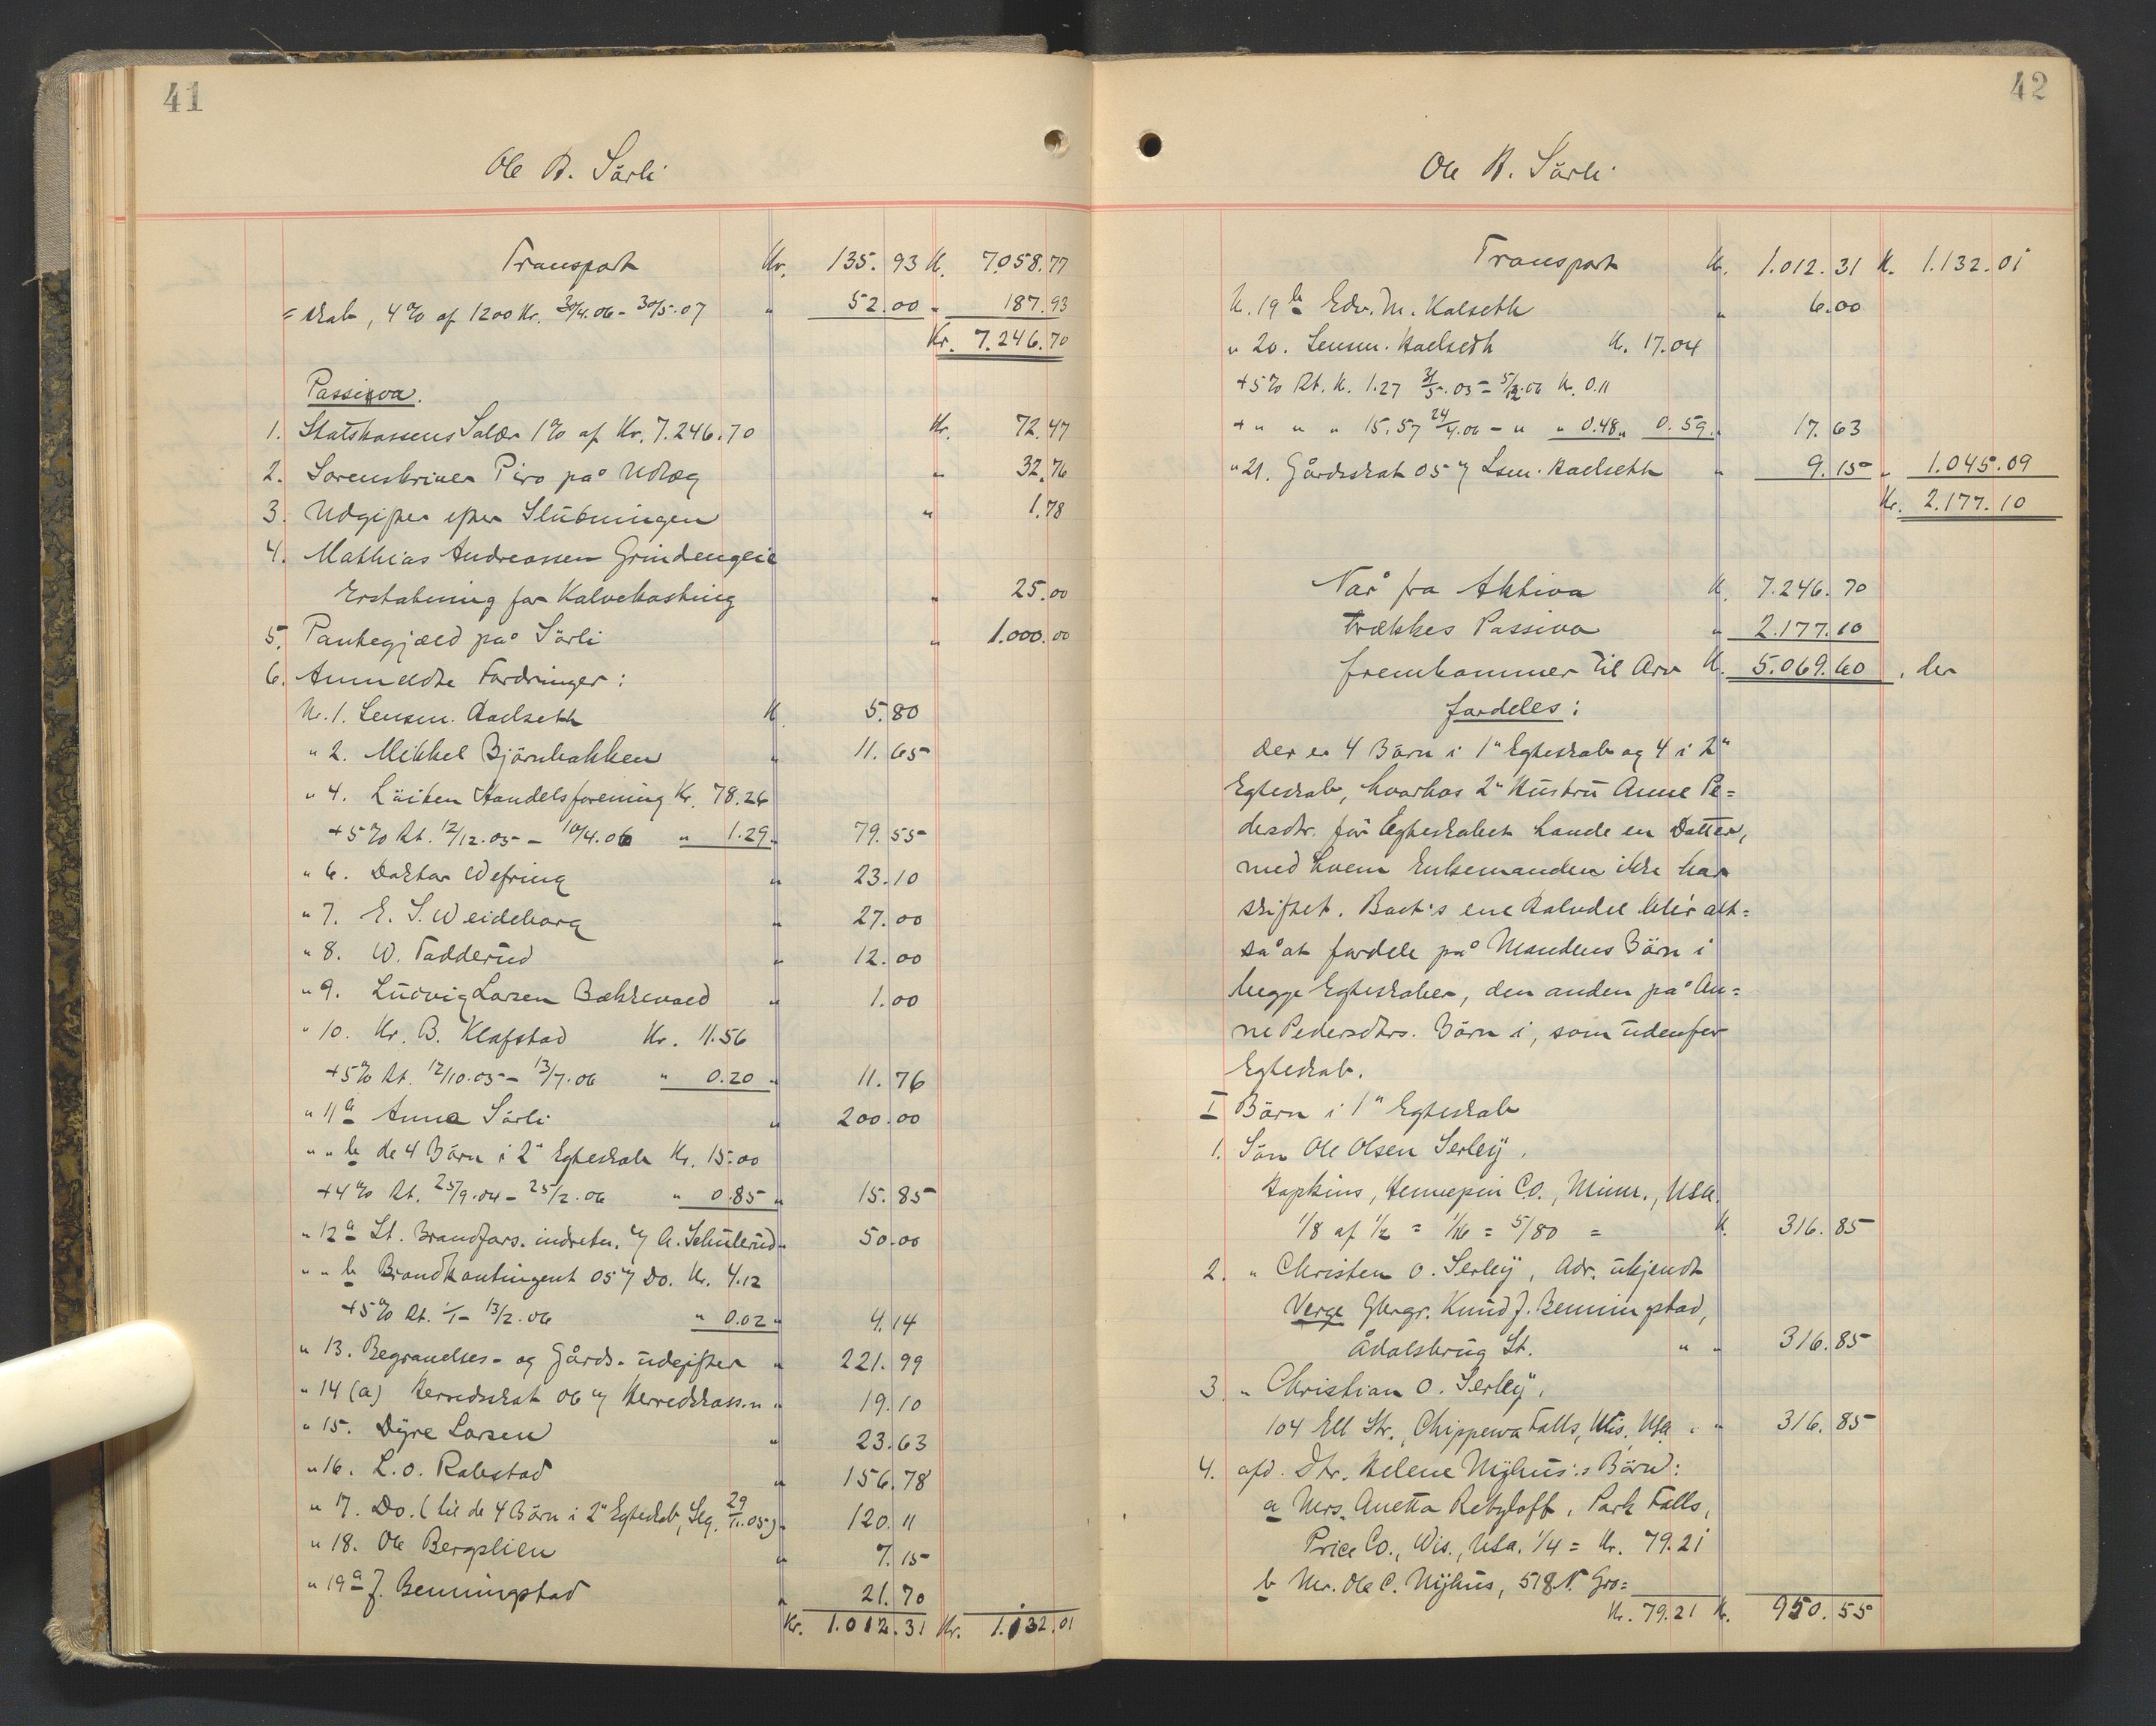 41
Ole A. Sörli
Transport Kr. 135.93 K. 7.058.77
= skab, 4% af 1200 Kr. 30/4.06 - 30/5.07 " 52.00 " 187.93
Kr. 7.246.70
Passiva.
1. Statskassens Salær 1% af Kr. 7.246.70 Kr. 72.47
2. Sorenskriver Piro på Udlæg " 32.76
3. Udgifter efter Slutningen " 1.78
4. Mathias Andreassen Grindengeie
Erstatning for Kalvekasting " 25.00
5. Pantegjæld på Sörli " 1.000.00
6. Anmeldte Fordringer:
N. 1. Lensm. Aaelseth K. 5.80
" 2. Mikkel Björnbakken " 11.65
" 4. Löiten Handelsforening Kr. 78.26
+ 5% Rt. 12/12.05 - 10/4.06 " 1.29 " 79.55
" 6. Doktor Wefring " 23.10
" 7. E. S. Weideborg " 27.00
" 8. W. Fadderud " 12.00
" 9. Ludvig Larsen Bækkevold " 1.00
" 10. Kr. B. Klafstad Kr. 11.56
+ 5% Rt. 12/10.05 - 13/7.06 " 0.20 " 11.76
" 11 a Anna Sörli " 200.00
" " b de 4 Börn i 2" Egteskab Kr. 15.00
+ 4% Rt. 25/9.04 - 25/2.06 " 0.85 " 15.85
" 12 a St. Brandfors. indretn. v/ A. Schulerud " 50.00
" " b Brandkontingent 05 v/ Do. Kr. 4.12
+ 5% Rt. 1/1 - 13/2.06 " 0.02 " 4.14
" 13. Begravelses- og Gårds-udgifter " 221.99
" 14 (a) Herredsskat 06 v/ Herredskass.n " 19.10
" 15. Dyre Larsen " 23.63
" 16. L. O. Rabstad " 156.78
" 17. Do. (til de 4 Börn i 2" Egteskab, Slg. 29/11.05) " 120.11
" 18. Ole Bergslien " 7.15
" 19 a J. Benningstad " 21.70
Kr. 1.012.31 Kr. 1.132.01
42
Ole A. Sörli
Transport K. 1.012.31 K. 1.132.01
N. 19 b Edv. M. Kalseth " 6.00
" 20. Lensm. Aaelseth K. 17.04
+ 5% Rt. K. 1.27 31/5.05 - 5/12.06 K. 0.11
+ " " " 15.57 24/4.06 - " " 0.48 " 0.59 " 17.63
" 21. Gårdsskat 05 v/ Lsm. Aaelseth " 9.15 " 1.045.09
Kr. 2.177.10
Når fra Aktiva K. 7.246.70
trækkes Passiva " 2.177.10
fremkommer til Arv K. 5.069.60, der
fordeles:
Der er 4 Börn i 1" Egteskab og 4 i 2"
Egteskab, hvorhos 2" Hustru Anne Pe=
dersdtr. för Egteskabet havde en Datter,
med hvem Enkemanden ikke har
skiftet. Boet's ene Halvdel blir alt=
så at fordele på Mandens Börn i
begge Egteskaber, den anden på An=
ne Pedersdtrs. Börn i, som udenfor
Egteskab.
I Börn i 1" Egteskab
1. Sön Ole Olsen Serley,
Hopkins, Hennepin Co., Minn., USA.
1/8 af 1/2 = 1/16 = 5/80 = K. 316.85
2. " Christen O. Serley, Adr. ukjendt
Verge Gbrgr. Knud J. Benningstad,
Ådalsbrug St. " " 316.85
3. " Christian O. Serley,
104 Ell Str., Chippewa Falls, Wis. Usa. " 316.85
4. afd. Dtr. Helene Nyhus's Börn:
a Mrs. Anetta Retzloff, Park Falls,
Price Co., Wis., Usa. 1/4 = Kr. 79.21
b Mr. Ole C. Nyhus, 518 N. Gro=
K. 79.21 K. 950.55